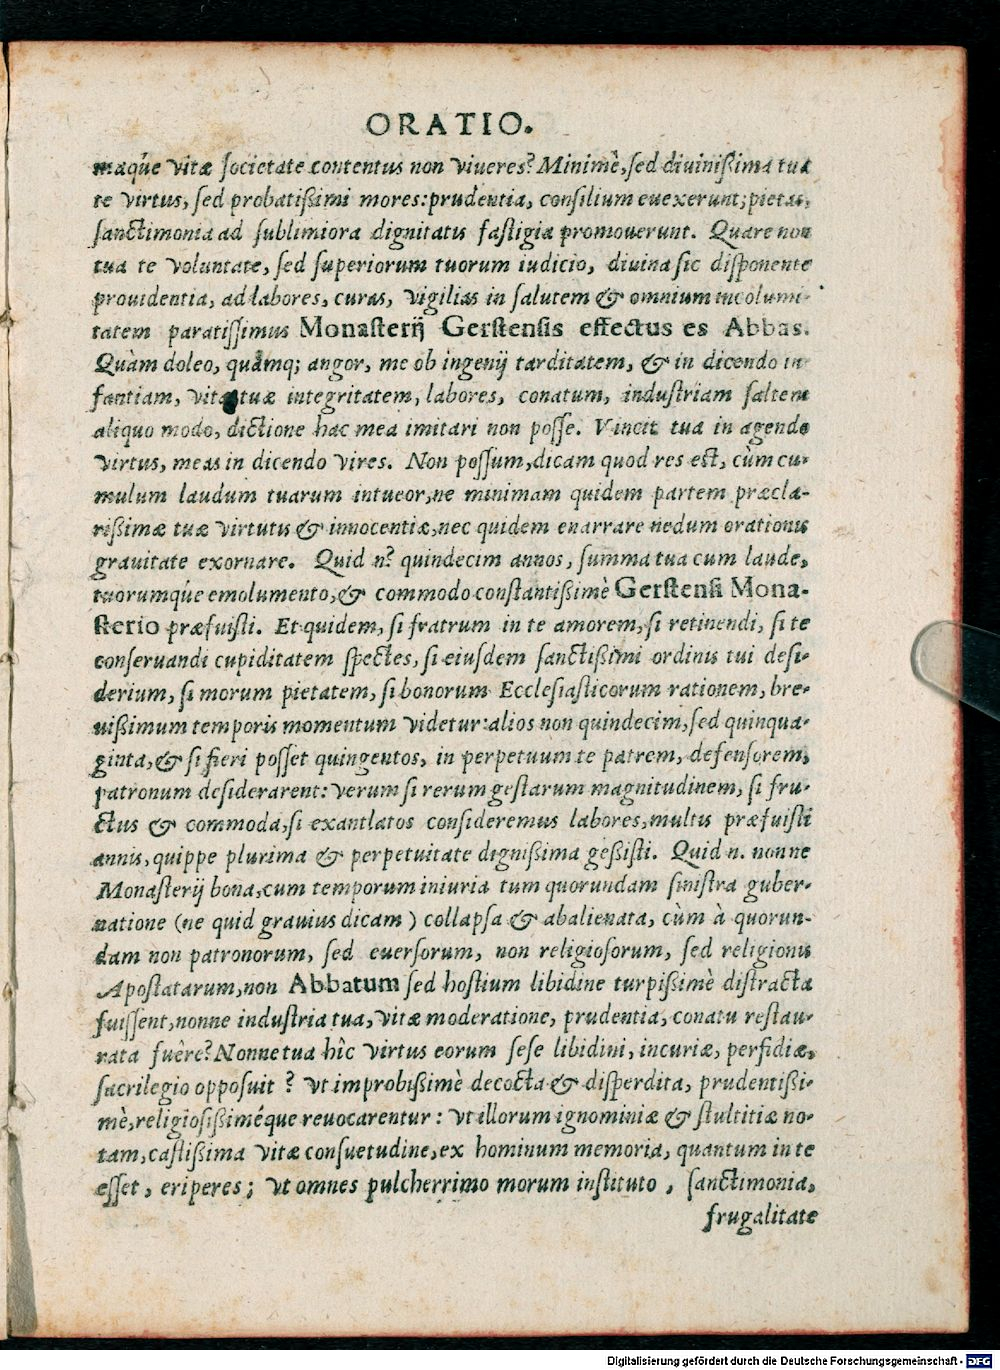 ORATIO.
maq́ue vitæ societate contentus non viueres? Minimè, sed diuinißima tua
te virtus, sed probatißimi mores: prudentia, consilium euexerunt; pietas,
sanctimonia ad sublimiora dignitatis fastigia promouerunt. Quare non
tua te voluntate, sed superiorum tuorum iudicio, diuina sic disponente
prouidentia, ad labores, curas, vigilias in salutem & omnium incolumi-
tatem paratissimus Monasterij Gerstensis effectus es Abbas.
Quàm doleo, quàmq; angor, me ob ingenij tarditatem, & in dicendo in-
fantiam, vitæ tuæ integritatem, labores, conatum, industriam saltem
aliquo modo, dictione hac mea imitari non posse. Vincit tua in agendo
virtus, meas in dicendo vires. Non possum, dicam quod res est, cùm cu-
mulum laudum tuarum intueor, ne minimam quidem partem præcla-
rißimæ tuæ virtutis & innocentiæ, nec quidem enarrare nedum orationis
grauitate exornare. Quid n? quindecim annos, summa tua cum laude,
tuorumq́ue emolumento, & commodo constantißimè Gerstensi Mona-
sterio præfuisti. Et quidem, si fratrum in te amorem, si retinendi, si te
conseruandi cupiditatem spectes, si eiusdem sanctißimi ordinis tui desi-
derium, si morum pietatem, si bonorum Ecclesiasticorum rationem, bre-
uißimum temporis momentum videtur: alios non quindecim, sed quinqua-
ginta, & si fieri posset quingentos, in perpetuum te patrem, defensorem,
patronum desiderarent: verum si rerum gestarum magnitudinem, si fru-
ctus & commoda, si exantlatos consideremus labores, multis præfuisti
annis, quippe plurima & perpetuitate dignißima geßisti. Quid n. nonne
Monasterij bona, cum temporum iniuria tum quorundam sinistra guber-
natione (ne quid grauius dicam) collapsa & abalienata, cùm à quorun-
dam non patronorum, sed euersorum, non religiosorum, sed religionis
Apostatarum, non Abbatum sed hostium libidine turpißimè distracta
fuissent, nonne industria tua, vitæ moderatione, prudentia, conatu restau-
rata fuêre? Nonne tua hîc virtus eorum sese libidini, incuriæ, perfidiæ,
sacrilegio opposuit? vt improbißimè decocta & disperdita, prudentißi-
mè, religiosißiméque reuocarentur: vt illorum ignominiæ & stultitiæ no-
tam, castißima vitæ consuetudine, ex hominum memoria, quantum in te
esset, eriperes; vt omnes pulcherrimo morum instituto, sanctimonia,
frugalitate
Digitalisierung gefördert durch die Deutsche Forschungsgemeinschaft - DFG